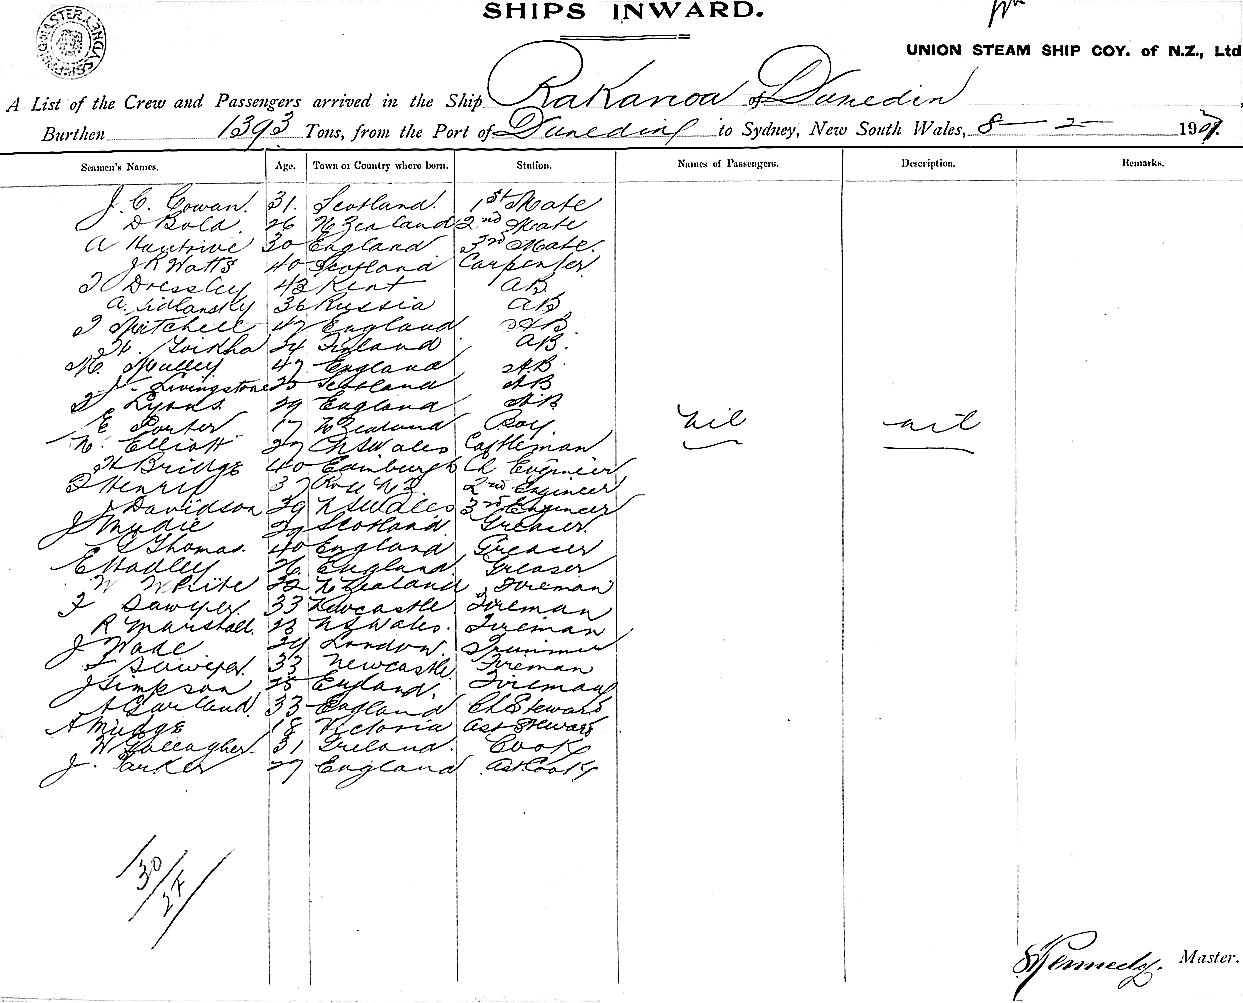 SHIPS INWARD.
UNION STEAM SHIP COY. of N.Z., Ltd
A List of the Crew and Passengers arrived in the Ship Rakanoa of Dunedin
Burthen 1393 Tons, from the Port of Dunedin to Sydney, New South Wales, 8 - 2 - 190
Seamen's Names. Age. Town or Country where born. Station. Names of Passengers. Description. Remarks.
J. C. Cowan. 31. Scotland. 1st Mate
D Bold. 26 N Zealand 2nd Mate
A Hautrive 30 England 3rd Mate.
J R Watts 40 Scotland Carpenter
T Dressley 43 Kent AB
A. Sidlansky 36 Russia AB
T Mitchell 47 England AB
24 Finland AB.
M. Mulley 47 England AB
J. Livingstone 25 Scotland AB
T Lyons 29 England AB
E Porter 17 N Zealand Boy nil nil
W. Elliott 27 N S Wales Cattleman
H Bridge 40 Edinburgh Ch Engineer
T Henry 37 N Z 2nd Engineer
J Davidson 39 N S Wales 3rd Engineer
J Mudie 29 Scotland Greaser.
C Thomas. 40 England Greaser
E Hadley 26 England Greaser
W White 22 N Zealand Fireman
F Sawyer 33 Newcastle Fireman
R Marshall. 23 N S Wales. Fireman
J Wade 24 London. Trimmer
F Sawyer 33 Newcastle Fireman
J Simpson 25 England. Fireman
A Garland. 33 England Ch Steward
A Mudge 18 Victoria Ast Steward
W Gallagher. 31 Ireland. Cook
J. Parker 27 England Ast Cook
30
Kennedy. Master.